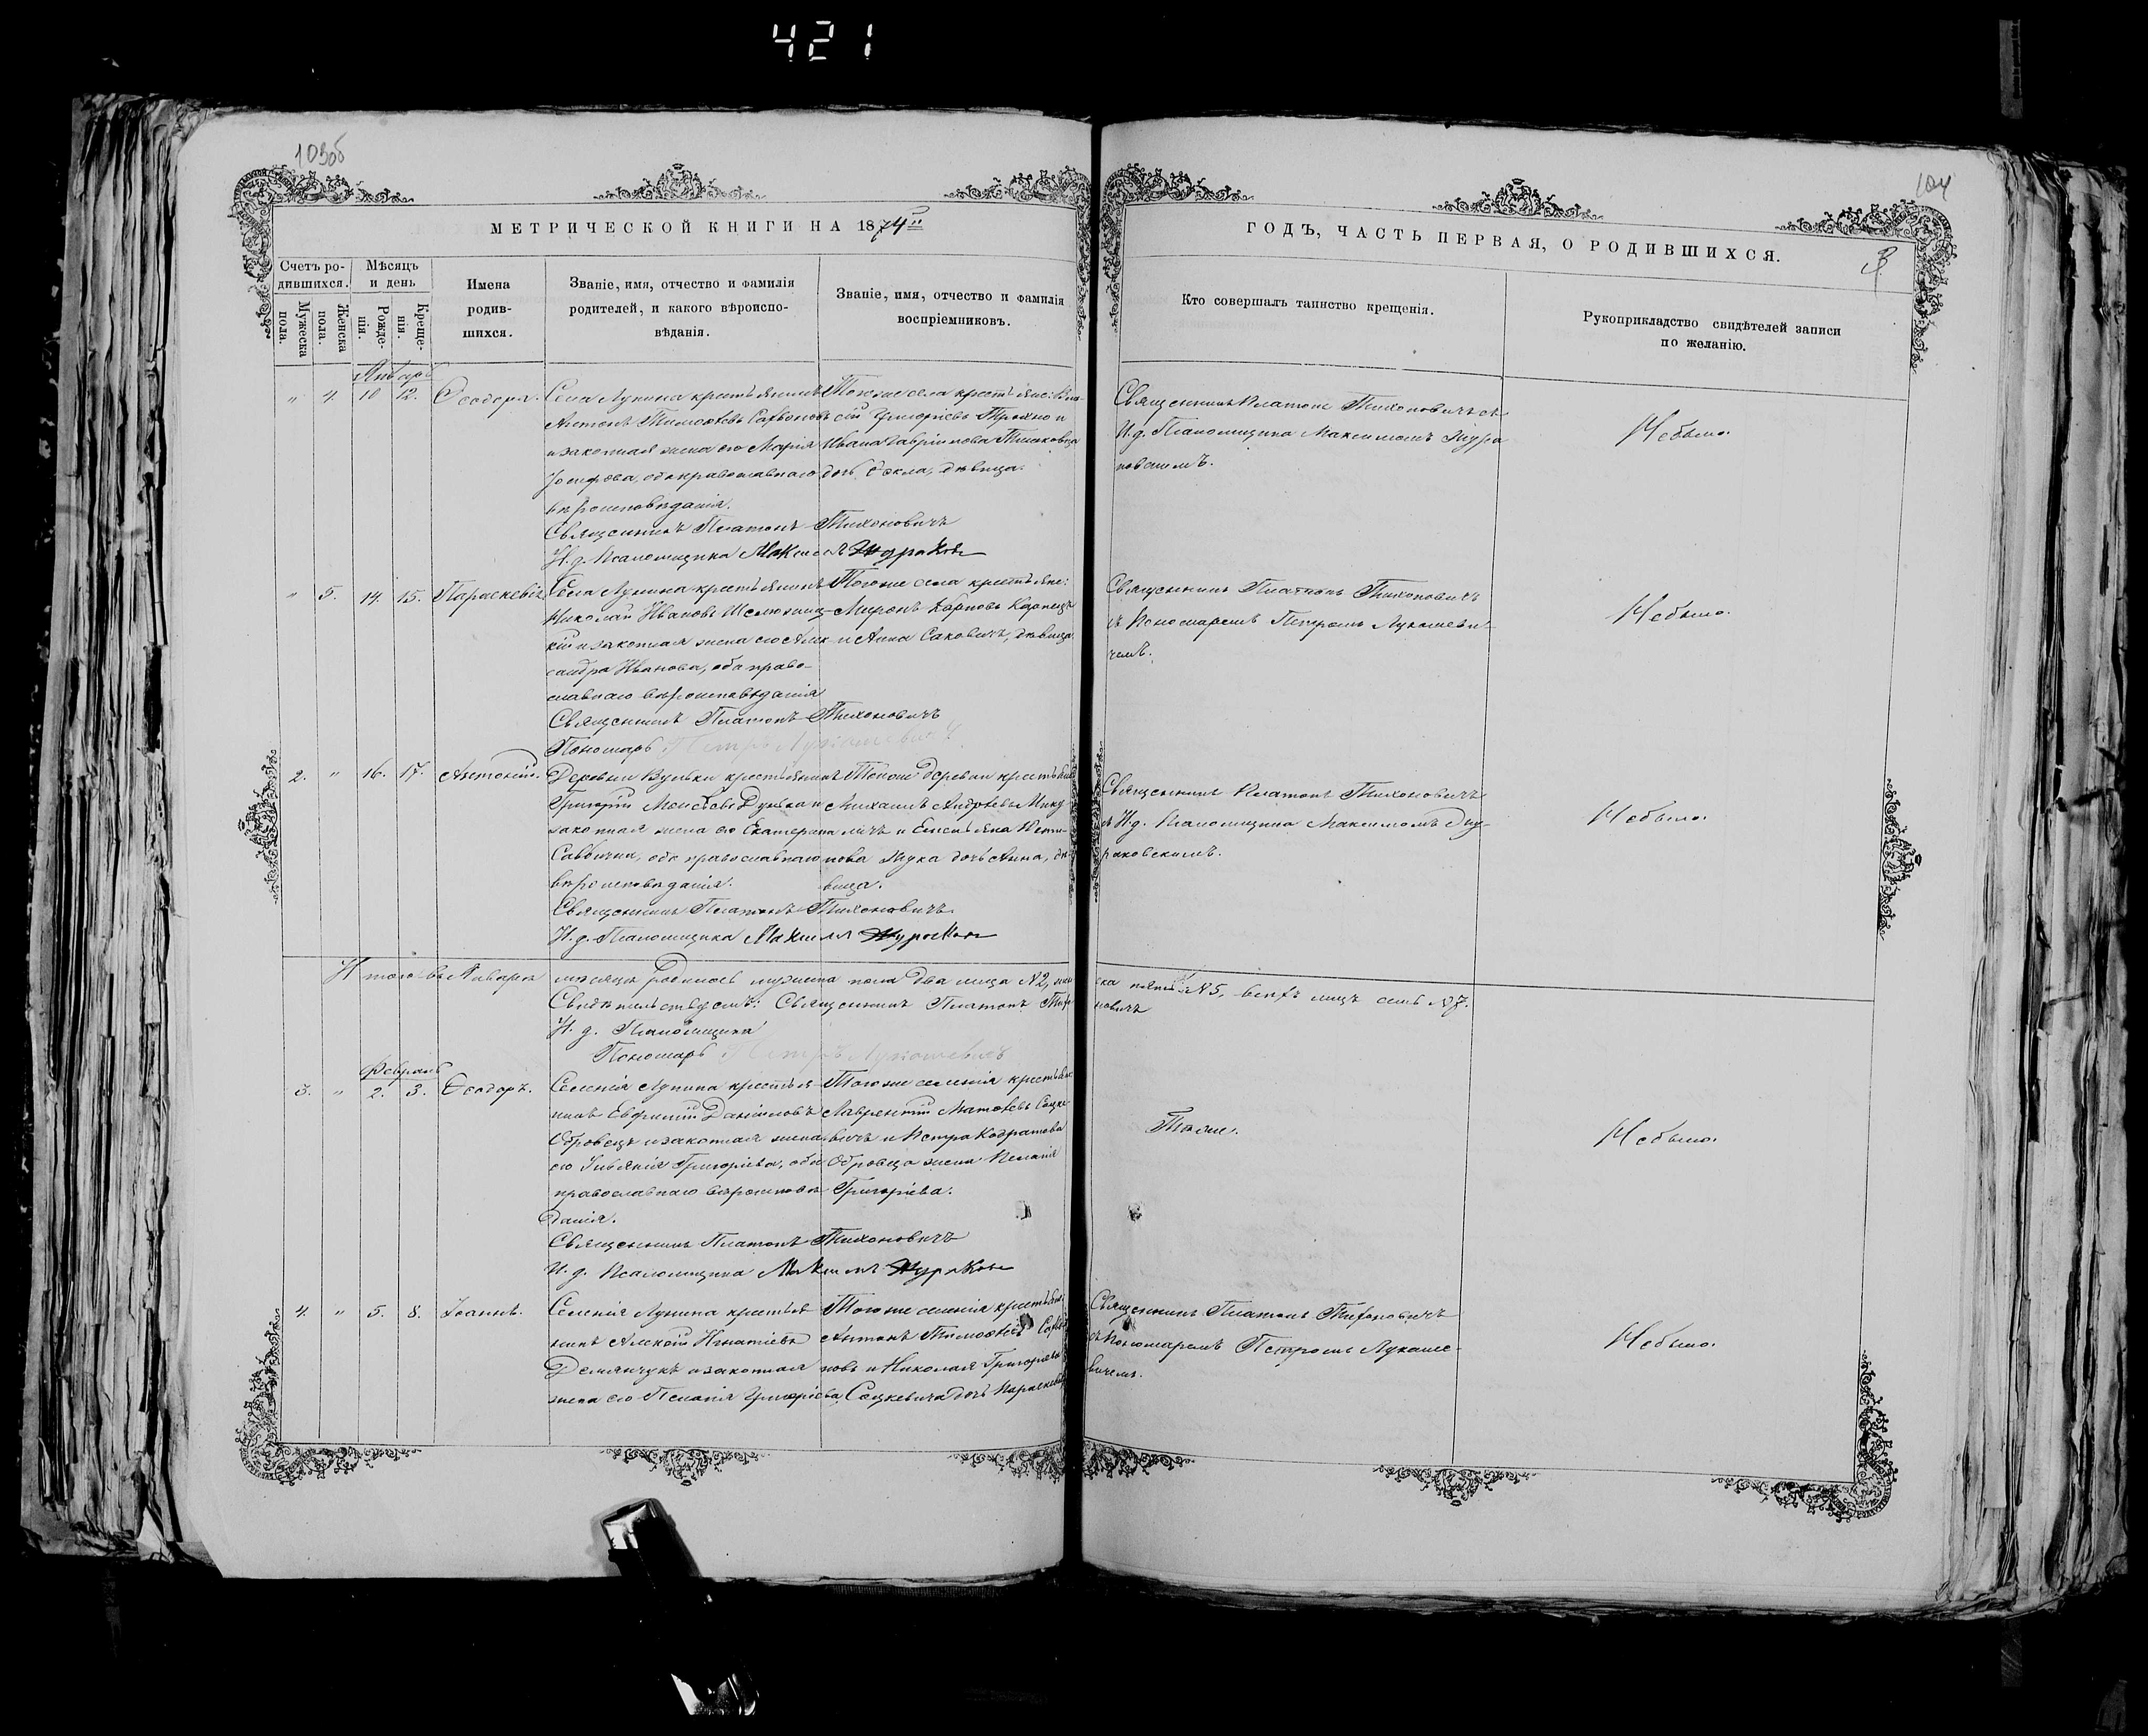 421
103об
104
МЕТРИЧЕСКОЙ КНИГИ НА 1874й
ГОДЪ, ЧАСТЬ ПЕРВАЯ, О РОДИВШИХСЯ.
3
Счетъ ро-
дившихся.
Мужеска
пола.
Женска
пола.
Мѣсяцъ
и день
Рожде-
нія.
Креще-
нія.
Имена
родив-
шихся.
Званіе, имя, отчество и фамилія
родителей, и какого вѣроиспо-
вѣданія.
Званіе, имя, отчество и фамилія
воспріемниковъ.
Кто совершалъ таинство крещенія.
Рукоприкладство свидѣтелей записи
по желанію.
Январь
" 4. 10 12. Ѳеодора.
Села Лунина крестьянинъ
Антонъ Тимоѳеевъ
и законная жена его Марія
Іосифова, оба православнаго
вѣроисповѣданія.
Священникъ Платонъ Тихоновичъ
И. д. Псаломщика Максимъ
Тогоже села крестьяне:
Григоріевъ
Ивана Гавріилова
дочь Ѳекла, дѣвица.
Священникъ Платонъ Тихоновичъ съ
И. д. Псаломщика Максимомъ
Небыло.
" 5. 14. 15. Параскевія
Села Лунина крестьянинъ
Николай Ивановъ
кій и законная жена его Алек-
сандра Иванова, оба право-
славнаго вѣроисповѣданія
Священникъ Платонъ Тихоновичъ
Пономарь Петръ Лукашевичъ
Тогоже села крестьяне:
Миронъ Карповъ
и Анна Саковичъ, дѣвица
Священникъ Платонъ Тихоновичъ
съ Пономаремъ Петромъ Лукашеви-
чемъ.
Небыло.
2. " 16. 17. Антоній.
Деревни Вульки крестьянинъ
Григорій Моисѣевъ
законная жена его Екатерина
Саввична, оба православнаго
вѣроисповѣданія.
Священникъ Платонъ Тихоновичъ
И. д. Псаломщика Максимъ
Тойже деревни крестьяне
Михаилъ Андреевъ Мику
личъ и
нова Жука дочь Анна, дѣ-
вица.
Священникъ Платонъ Тихоновичъ
съ И. д. Псаломщика Максимомъ Жу-
раковскимъ.
Небыло.
Итого въ Январѣ мѣсяцѣ родилось мужеска пола два лица №2, жен
ска пять №5, всѣхъ лицъ семь №7.
Свидѣтельствуемъ: Священникъ Платонъ Тихо
новичъ
И. д. Псаломщика
Пономарь Петръ Лукашевичъ
Февраль
3. " 2. 3. Ѳеодоръ.
Селенія Лунина крестья-
нинъ Евфимій Даніиловъ
Обровецъ и законная жена
его Григоріева, оба
православнаго вѣроисповѣ
данія.
Священникъ Платонъ Тихоновичъ
И. д. Псаломщика Максимъ
Тогоже селенія крестьяне
Лаврентій Матѳеевъ Сацке-
вичъ и Петра Кодратова
Обровца жена Пелагія
Григоріева.
Тѣже.
Небыло.
4. " 5. 8. Іоаннъ.
Селенія Лунина крестья
нинъ Алексій Игнатіевъ
Демянчукъ и законная
жена его Пелагія Григоріева,
Тогоже селенія крестьяне
Антонъ Тимоѳеевъ
новъ и Николая Григоріева
Сацкевича дочь Параскева
Священникъ Платонъ Тихоновичъ
съ Пономаремъ Петромъ Лукаше-
вичемъ.
Небыло.